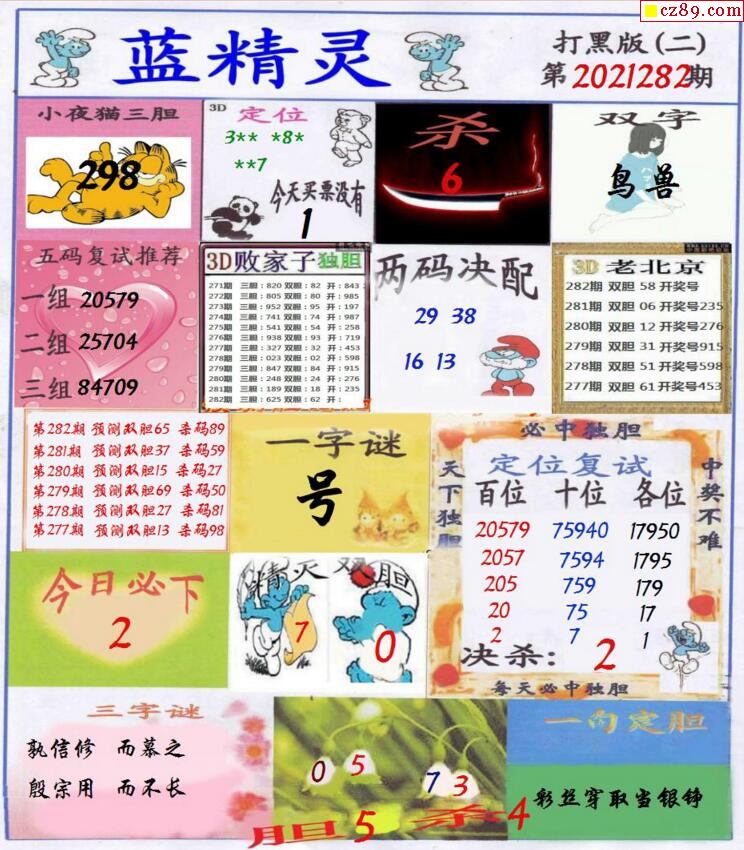 cz89.com
蓝精灵
打黑版(二)
第2021282期
小夜猫三胆
298
3D 定位
3** *8*
**7
今天买票没有
1
杀
6
双字
鸟兽
五码复试推荐
一组 20579
二组 25704
三组 84709
3D败家子独胆
271期 三胆:820 双胆:82 开:843
272期 三胆:805 双胆:80 开:985
273期 三胆:952 双胆:95 开:197
274期 三胆:741 双胆:74 开:987
275期 三胆:541 双胆:54 开:258
276期 三胆:938 双胆:93 开:719
277期 三胆:327 双胆:32 开:453
278期 三胆:023 双胆:02 开:598
279期 三胆:847 双胆:84 开:915
280期 三胆:248 双胆:24 开:276
281期 三胆:189 双胆:18 开:235
282期 三胆:625 双胆:62 开:
两码决配
29 38
16 13
3D 老北京
282期 双胆 58 开奖号
281期 双胆 06 开奖号235
280期 双胆 12 开奖号276
279期 双胆 31 开奖号915
278期 双胆 51 开奖号598
277期 双胆 61 开奖号453
第282期 预测双胆65 杀码89
第281期 预测双胆37 杀码59
第280期 预测双胆15 杀码27
第279期 预测双胆69 杀码50
第278期 预测双胆27 杀码81
第277期 预测双胆13 杀码98
一字谜
号
必中独胆
天下独胆
中奖不难
定位复试
百位 十位 各位
20579 75940 17950
2057 7594 1795
205 759 179
20 75 17
2 7 1
决杀: 2
每天必中独胆
今日必下
2
精灵 双胆
7 0
三字谜
孰信修 而慕之
殷宗用 而不长
0 5
7 3
胆 5 杀4
一句定胆
彩丝穿取当银铮